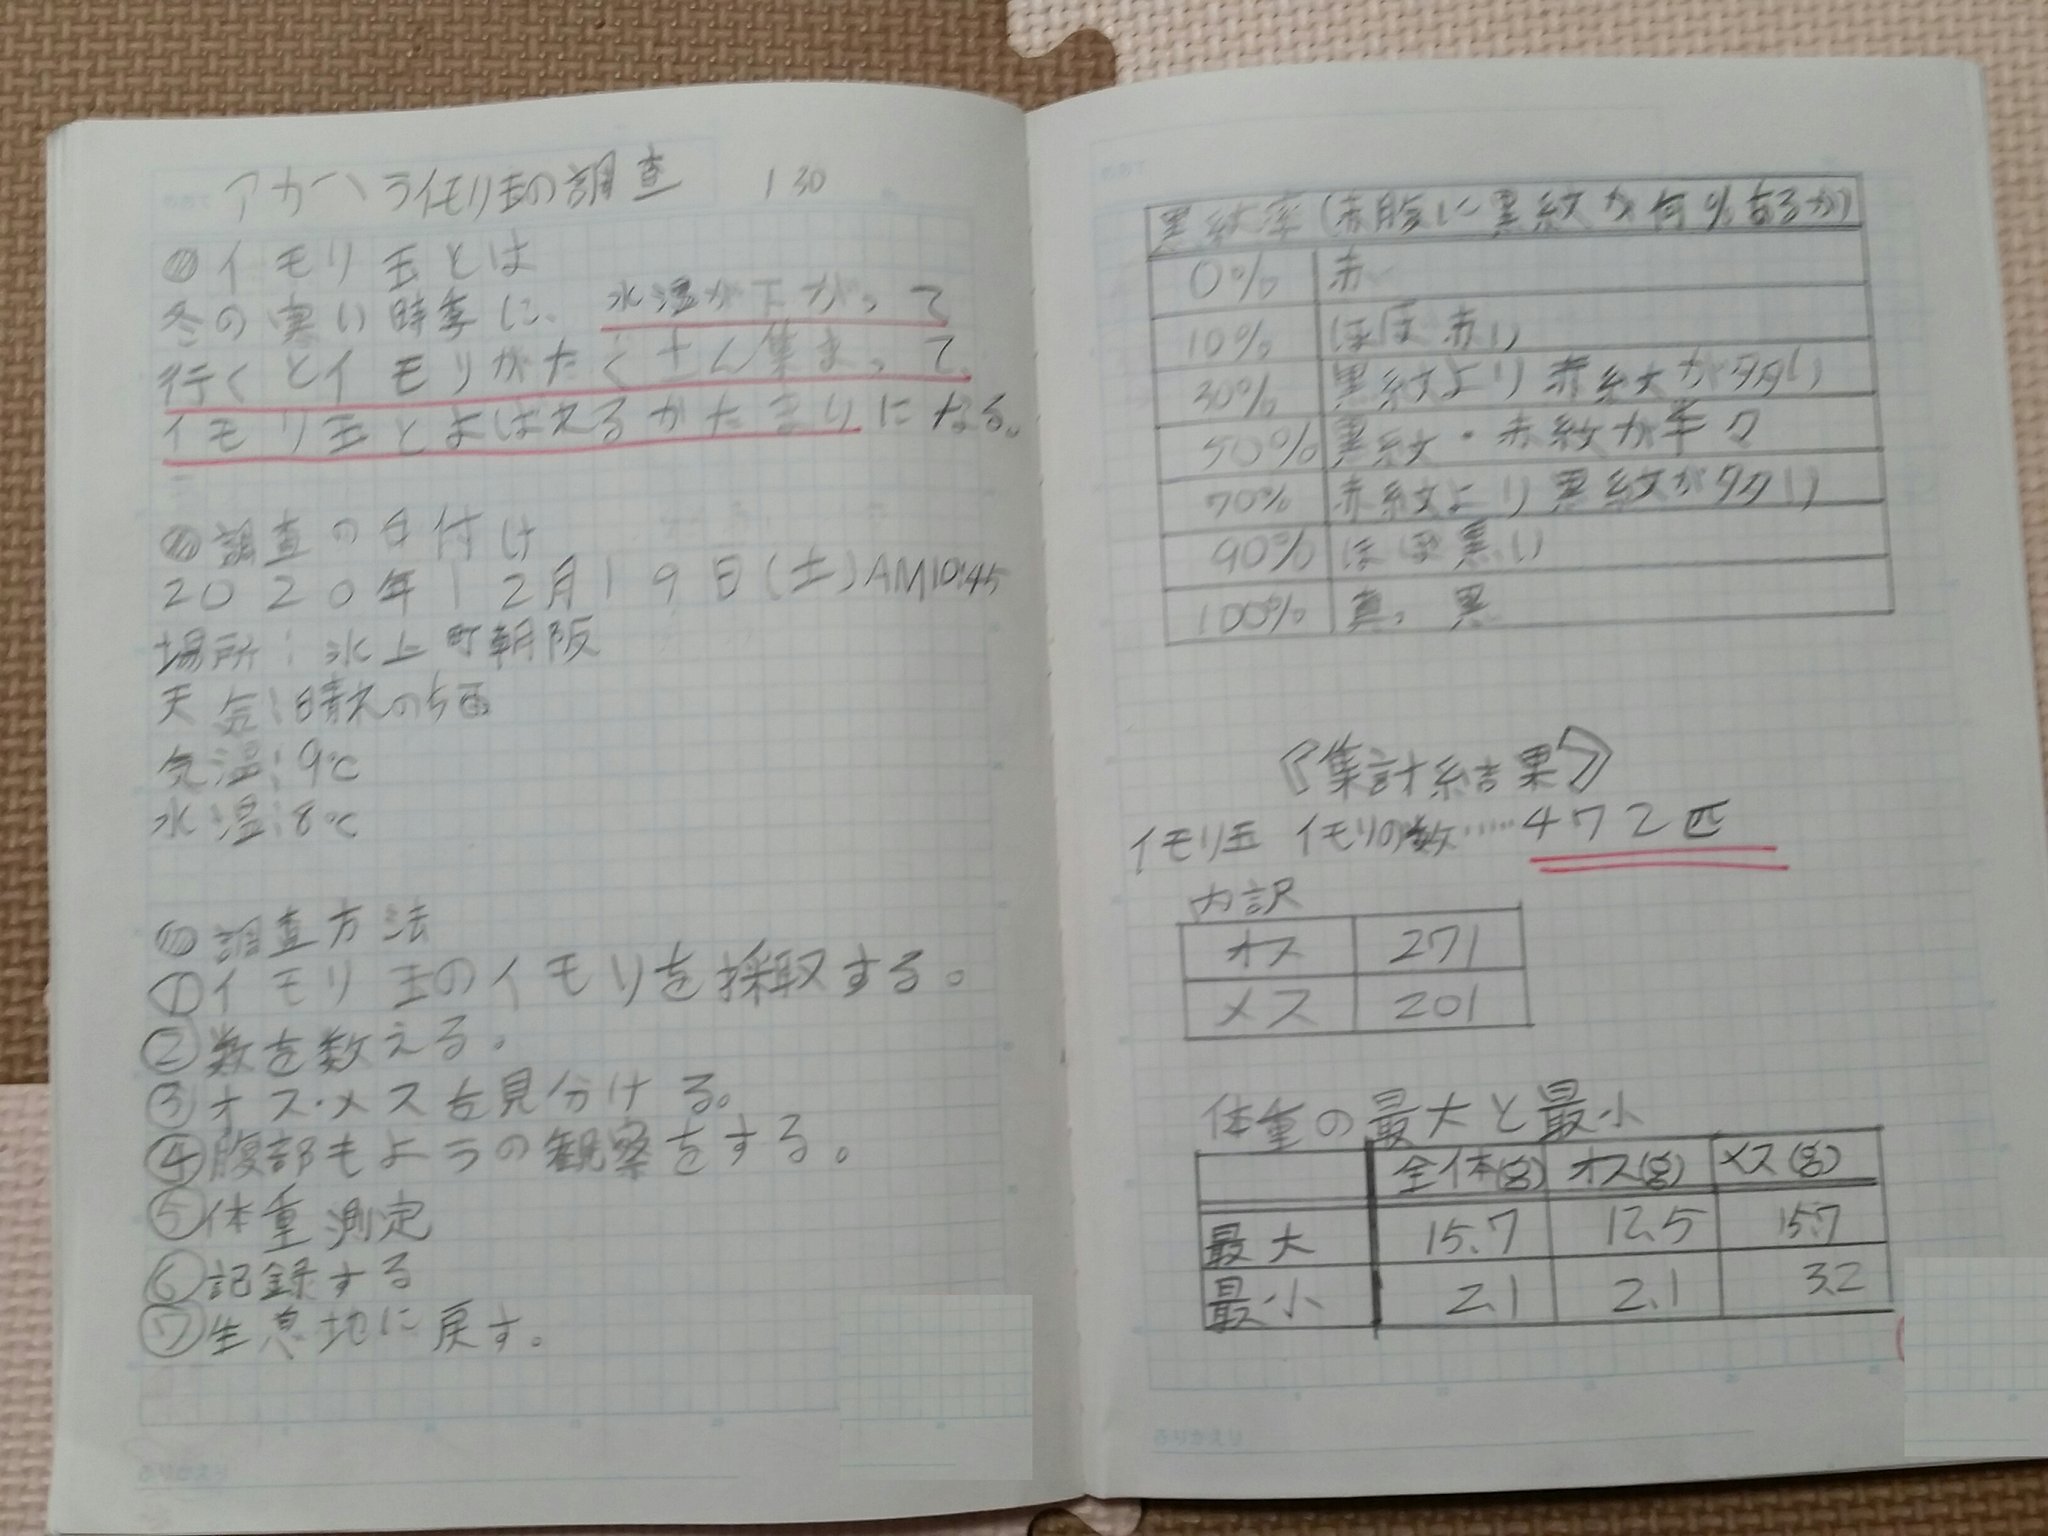 アカハライモリ玉の調査 1 30
イモリ玉とは
冬の寒い時季に、水温が下がって
行くとイモリがたくさん集まって、
イモリ玉とよばえるかたまりになる。
調査の日付け
2020年12月19日(土)AM10:45
場所:氷上町朝阪
天気:晴れのち雨
気温:9℃
水温:8℃
調査方法
①イモリ玉のイモリを採取する。
②数を数える。
③オス・メスを見分ける。
④腹部もようの観察をする。
⑤体重測定
⑥記録する
⑦生息地に戻す。
黒紋率(赤腹に黒紋が何%あるか)
0% 赤
10% ほぼ赤い
30% 黒紋より赤紋が多い
50% 黒紋・赤紋が半々
70% 赤紋より黒紋が多い
90% ほぼ黒い
100% 真っ黒
『集計結果』
イモリ玉 イモリの数……472匹
内訳
オス 271
メス 201
体重の最大と最小
全体(g) オス(g) メス(g)
最大 15.7 12.5 15.7
最小 2.1 2.1 3.2